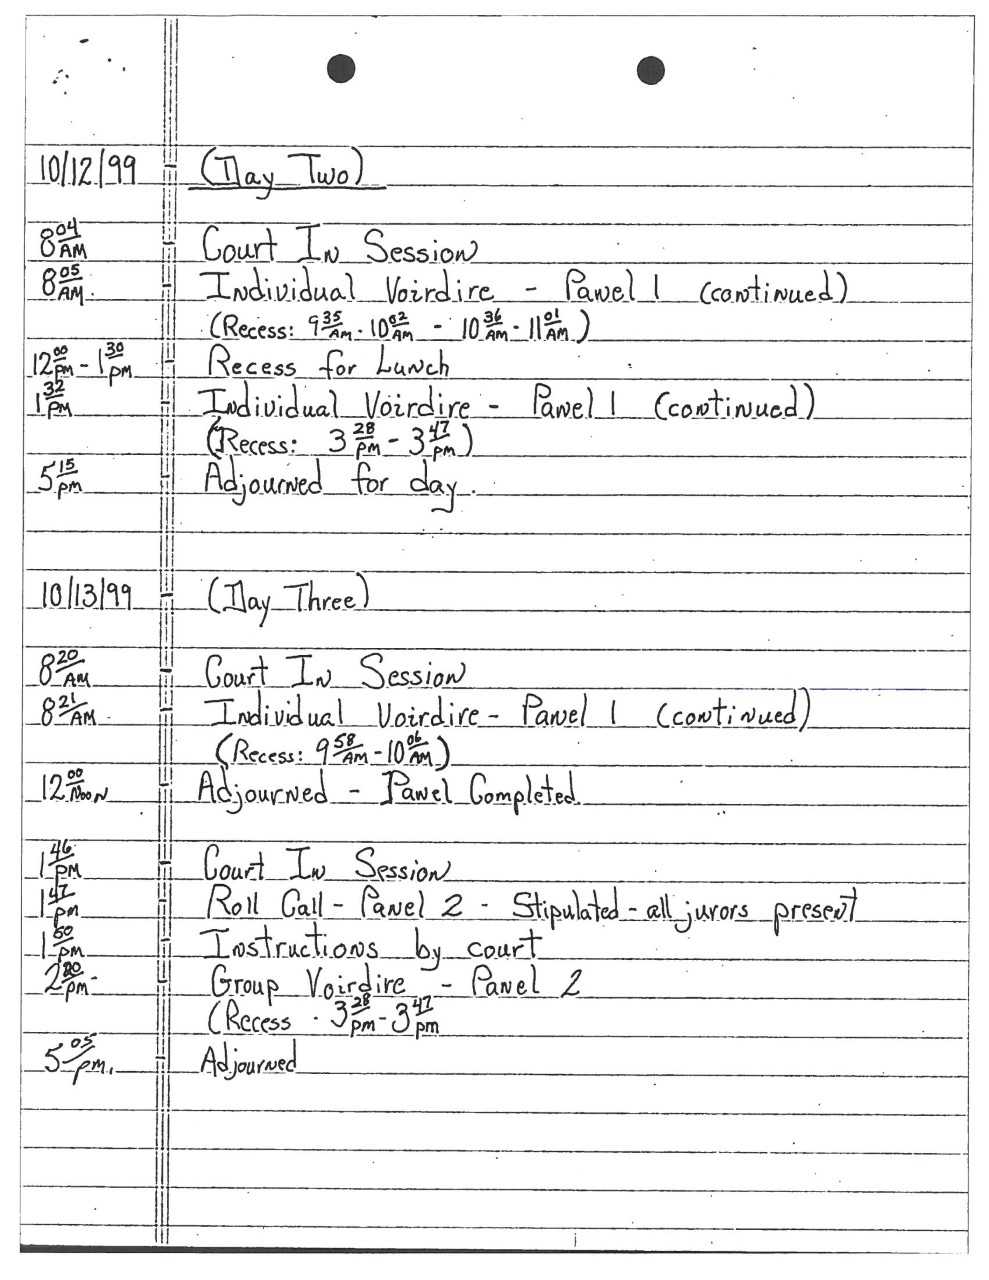 10/12/99 - (Day Two)
8 04 AM - Court In Session
8 05 AM. - Individual Voirdire - Panel 1 (continued)
(Recess: 9 35 AM - 10 02 AM - 10 36 AM - 11 01 AM)
12 00 PM - 1 30 PM - Recess for Lunch
1 32 PM - Individual Voirdire - Panel 1 (continued)
(Recess: 3 28 PM - 3 47 PM)
5 15 PM - Adjourned for day.
10/13/99 - (Day Three)
8 20 AM - Court In Session
8 21 AM - Individual Voirdire - Panel 1 (continued)
(Recess: 9 58 AM - 10 06 AM)
12 00 Noon - Adjourned - Panel Completed
1 46 PM - Court In Session
1 47 PM - Roll Call - Panel 2 - Stipulated - all jurors present
1 50 PM - Instructions by court
2 20 PM - Group Voirdire - Panel 2
(Recess - 3 28 PM - 3 47 PM
5 05 PM. - Adjourned